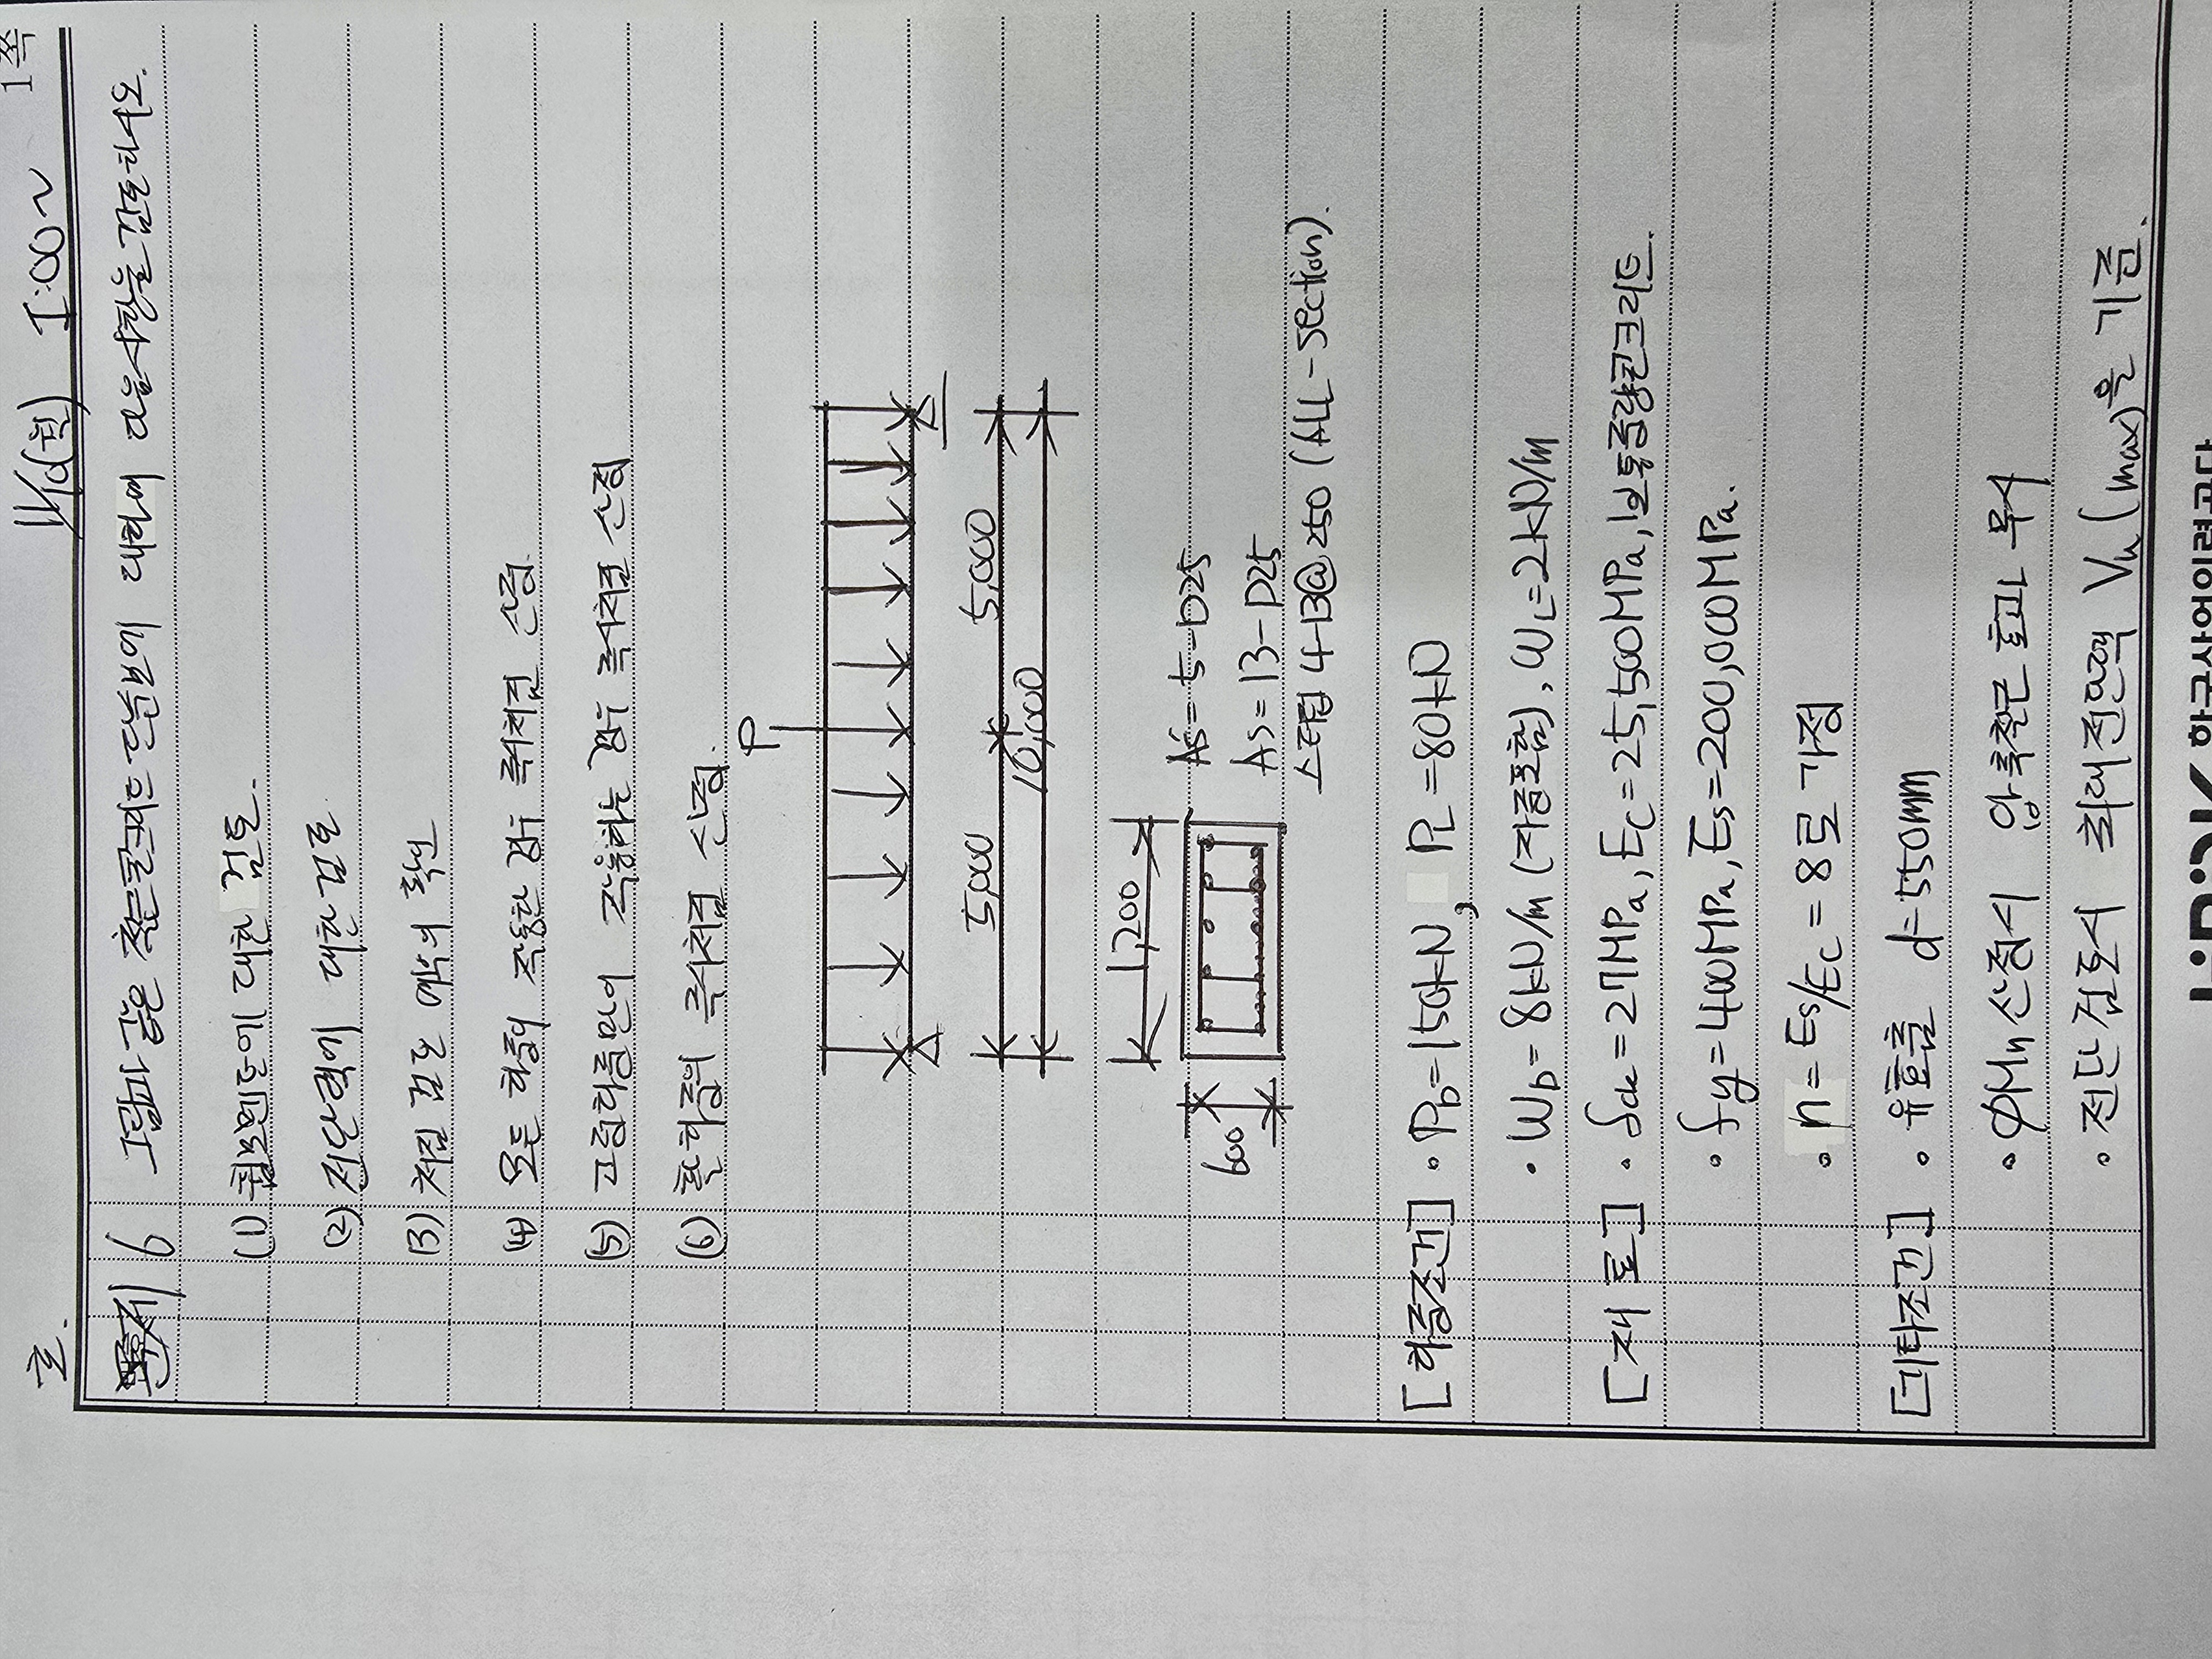 호.
11/10(월) I:00~
1쪽
문제 6 그림과 같은 철근콘크리트 단순보에 대하여 다음사항을 검토하시오.
(1) 휨모멘트에 대한 검토.
(2) 전단력에 대한 검토
(3) 처짐 검토 여부의 확인
(4) 모든 하중이 작용한 경우 즉시처짐 산정.
(5) 고정하중만이 작용하는 경우 즉시처짐 산정
(6) 활하중의 즉시처짐 산정.
P
5,000
5,000
10,000
1,200
600
As'=5-D25
As=13-D25
스터럽 4-D13@250 (ALL-section).
[하중조건] • PD=150kN, PL=80kN
• WD=8kN/m (자중포함), WL=2kN/m
[재 료] • fck=27MPa, Ec=25,500MPa, 보통중량콘크리트.
• fy=400MPa, Es=200,000MPa.
• n=Es/Ec=8로 가정
[기타조건] • 유효춤 d=550mm
• ØMn산정시 압축철근 효과 무시
• 전단검토시 최대전단력 Vu(max)을 기준.
한국산업인력공단